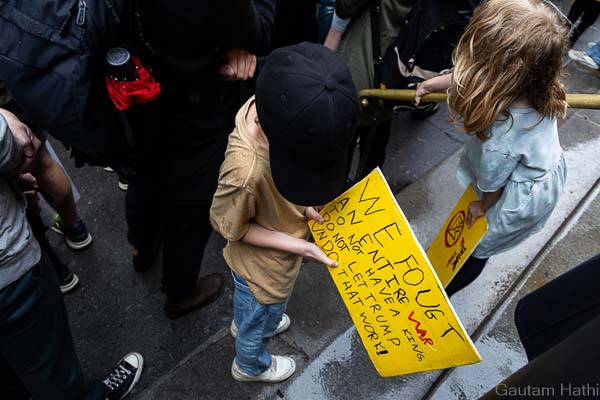 WE FOUGHT
AN ENTIRE WAR
TO NOT HAVE A KING.
DO NOT LET TRUMP
UNDO THAT WORK!
Gautam Hathi